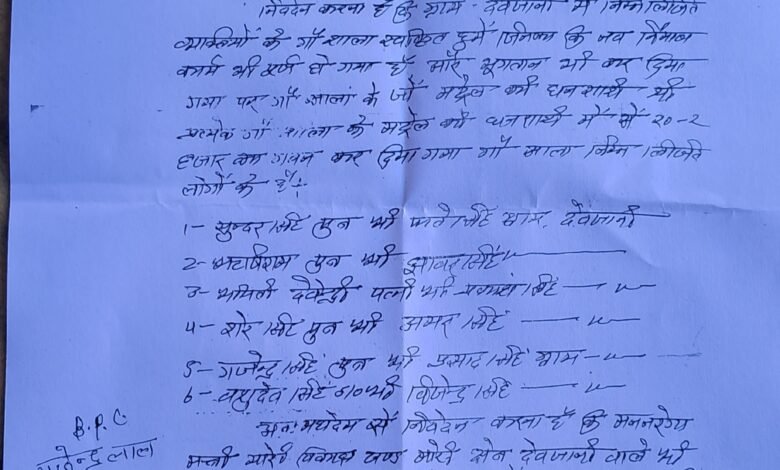 निवेदन करना है कि ग्राम - देवजानी में निम्न लिखित
व्यक्तियों के गौ शाला स्वीकृत हुये जिनका कि नव निर्माण
कार्य भी पूर्ण हो गया है और भुगतान भी कर दिया
गया पर गौ शाला के जो मट्रेल की धनराशी थी
प्रत्येक गौ शाला के मट्रेल की धनराशी में से २०-२
हजार का गवन कर दिया गया गौ शाला निम्न लिखित
लोगों के है :-
1- सुन्दर सिंह पुत्र श्री फते सिंह ग्राम. देवजानी
2- पुत्र श्री झावर सिंह — " —
3- श्रीमती देवेन्द्री पत्नी श्री सिंह — " —
4- शेर सिंह पुत्र श्री अमर सिंह — " —
5- गजेन्द्र सिंह पुत्र श्री प्रसाद सिंह ग्राम — " —
6- वासुदेव सिंह S/o श्री विजेन्द्र सिंह — " —
अतः महोदय से निवेदन करना है कि मनरेगा
B.P.C.
लाल
मोरी विकास खण्ड मोरी देवजानी वाले भी